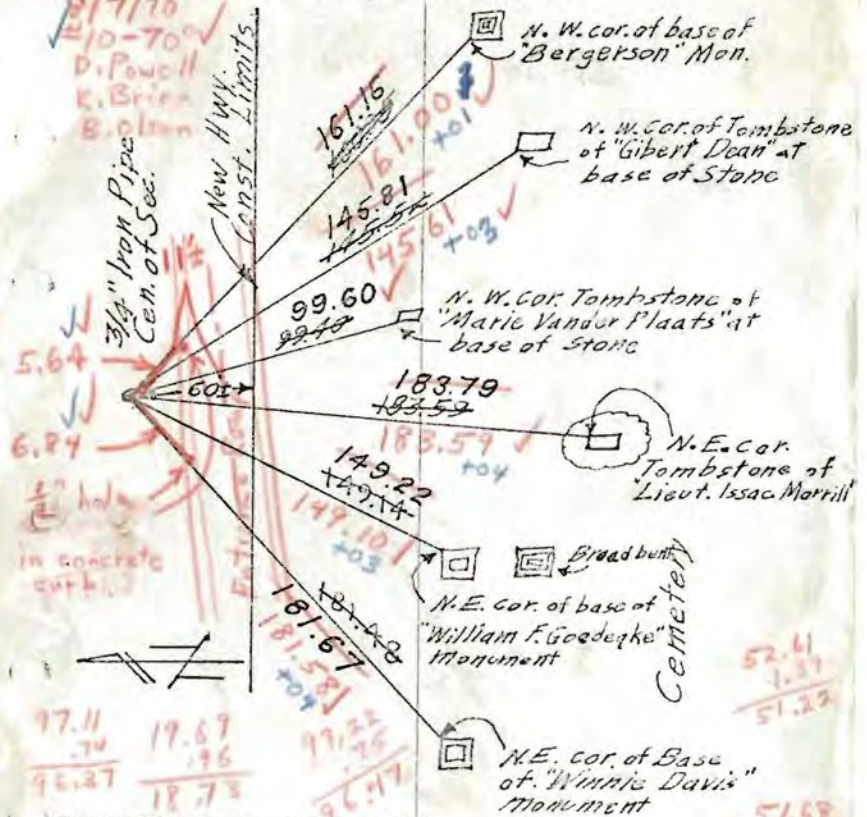 10-70
D. Powell
K. Brien
B. Olson
3/4" Iron Pipe
Cen. of Sec.
New Hwy.
Const. Limits
N. W. cor. of base of
"Bergerson" Mon.
161.15
161.00
+01
N. W. Cor. of Tombstone
of "Gibert Dean" at
base of Stone
145.81
145.61
+03
11"±
99.60
99.40
N. W. Cor. Tombstone of
"Marie Vander Plaats" at
base of Stone
5.64
60±
183.79
183.59
183.59
+04
N.E. cor.
Tombstone of
Lieut. Issac Morrill
6.84
hole
in concrete
curb
149.22
149.14
149.10
+03
Broadbent
N.E. cor. of base of
"William F. Goedeqke"
Monument
Cemetery
181.48
181.67
181.58
+04
N.E. cor. of Base
of "Winnie Davis"
Monument
97.11
.74
96.37
19.69
.96
18.73
97.22
.75
96.47
52.61
1.39
51.22